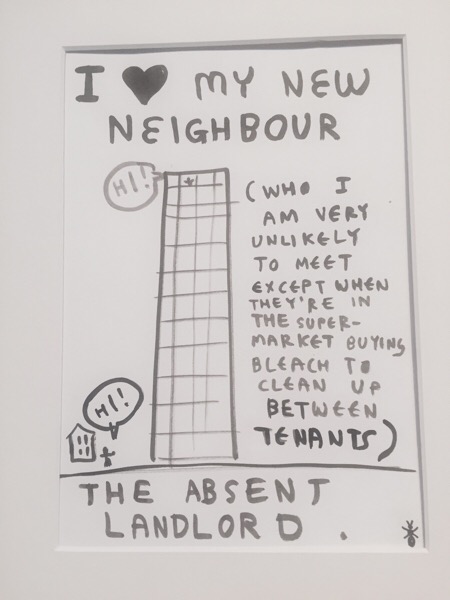 I ♥ MY NEW
NEIGHBOUR
HI!!
(WHO I
AM VERY
UNLIKELY
TO MEET
EXCEPT WHEN
THEY'RE IN
THE SUPER-
MARKET BUYING
BLEACH TO
CLEAN UP
BETWEEN
TENANTS)
HI!!
THE ABSENT
LANDLORD.